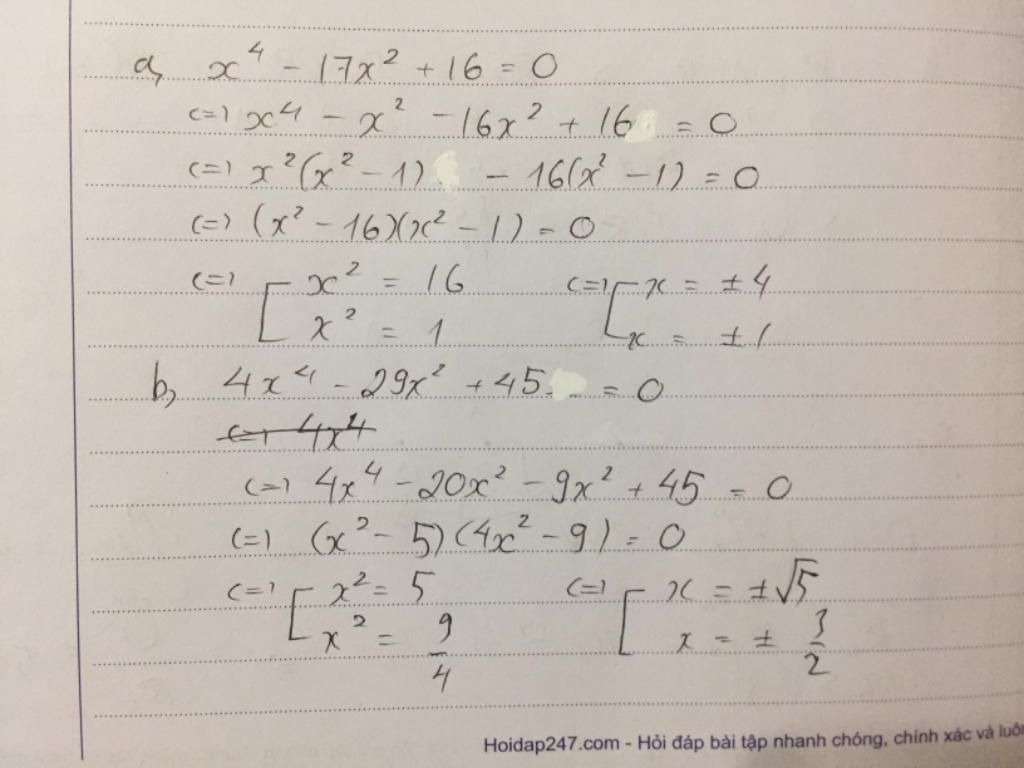 a, x⁴ - 17x² + 16 = 0
<=> x⁴ - x² - 16x² + 16 = 0
<=> x²(x² - 1) - 16(x² - 1) = 0
<=> (x² - 16)(x² - 1) = 0
<=> [ x² = 16 <=> [ x = ± 4
x² = 1 x = ± 1
b, 4x⁴ - 29x² + 45 = 0
<=> 4x⁴
<=> 4x⁴ - 20x² - 9x² + 45 = 0
<=> (x² - 5)(4x² - 9) = 0
<=> [ x² = 5 <=> [ x = ±√5
x² = 9/4 x = ± 3/2
Hoidap247.com - Hỏi đáp bài tập nhanh chóng, chính xác và luôn